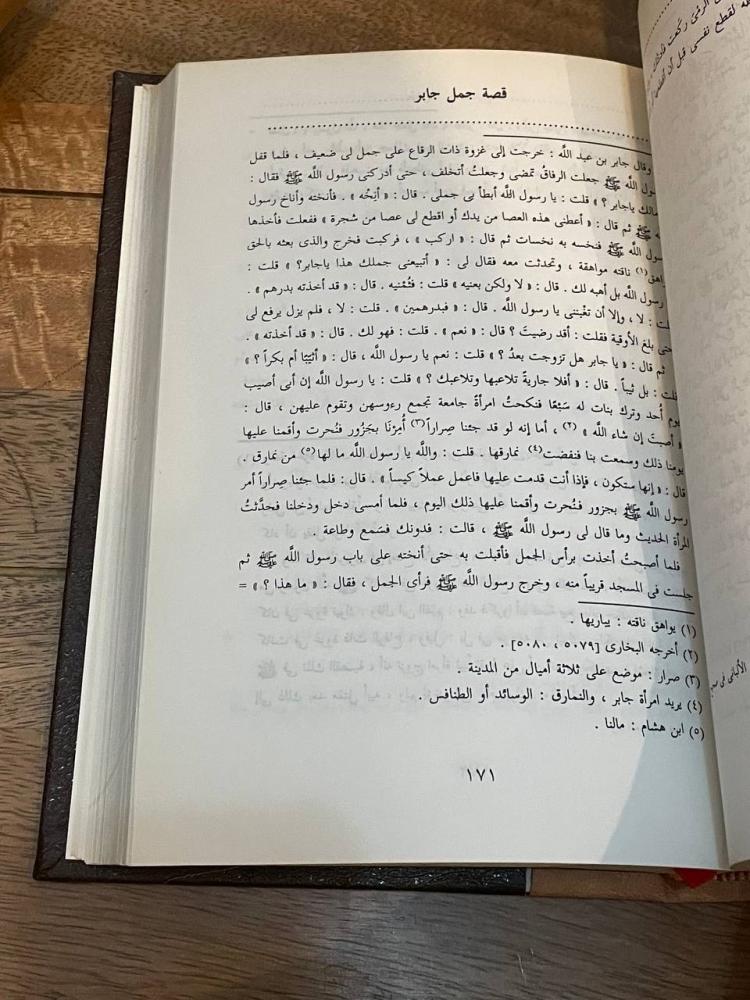 قصة جمل جابر
وقال جابر بن عبد اللَّه : خرجت إلى غزوة ذات الرقاع على جمل لى ضعيف ، فلما قفل
اللَّه ﷺ جعلت الرفاقُ تمضى وجعلتُ أتخلف ، حتى أدركنى رسول اللَّه ﷺ فقال :
مالك ياجابر ؟ » قلت : يا رسول اللَّه أبطأ بى جملى . قال : « أنِخْه » . فأنخته وأناخ رسول
ﷺ ثم قال : « أعطنى هذه العصا من يدك أو اقطع لى عصا من شجرة » ففعلت فأخذها
اللَّه ﷺ فنخسه به نخسات ثم قال : « اركب » ، فركبت فخرج والذى بعثه بالحق
(١) ناقته مواهقة ، وتحدثت معه فقال لى : « أتبيعنى جملك هذا ياجابر؟ » قلت :
رسول اللَّه بل أهبه لك . قال : « لا ولكن بعنيه » قلت : فثمِّنيه . قال : « قد أخذته بدرهم » .
لا ، وإلا أن تغْبننى يا رسول اللَّه . قال : « فبدرهمين » . قلت : لا ، فلم يزل يرفع لى
بلغ الأوقية فقلت : أقد رضيتَ ؟ قال : « نعم » . قلت : فهو لك . قال : « قد أخذته » .
ثم قال : « يا جابر هل تزوجت بعدُ ؟ » قلت : نعم يا رسول اللَّه ، قال : « أثيِّبًا أم بكراً ؟ »
: بل ثيباً . قال : « أفلا جاريةً تلاعبها وتلاعبك ؟ » قلت : يا رسول اللَّه إن أبى أصيب
أُحد وترك بنات له سَبْعًا فنكحتُ امرأةً جامعة تجمع رءوسهن وتقوم عليهن ، قال :
« أصبتَ إن شاء اللَّه » (٢) ، أما إنه لو قد جئنا صِراراً(٣) أمَرْنَا بجَزُور فنُحرت وأقمنا عليها
يومنا ذلك وسمعت بنا فنفضت(٤) نمارقها . قلت : واللَّه يا رسول اللَّه ما لها(٥) من نمارق .
قال : « إنها ستكون ، فإذا أنت قدمت عليها فاعمل عملاً كيساً » . قال : فلما جئنا صِراراً أمر
رسول اللَّه ﷺ بجزور فنُحرت وأقمنا عليها ذلك اليوم ، فلما أمسى دخل ودخلنا فحدَّثتُ
المرأة الحديث وما قال لى رسول اللَّه ﷺ ، قالت : فدونك فسَمع وطاعة .
فلما أصبحتُ أخذت برأس الجمل فأقبلت به حتى أنخته على باب رسول اللَّه ﷺ ثم
جلست فى المسجد قريباً منه ، وخرج رسول اللَّه ﷺ فرأى الجمل ، فقال : « ما هذا ؟ » =
(١) يواهق ناقته : يباريها .
(٢) أخرجه البخارى [٥٠٧٩ ، ٥٠٨٠] .
(٣) صرار : موضع على ثلاثة أميال من المدينة .
(٤) يريد امرأة جابر ، والنمارق : الوسائد أو الطنافس .
(٥) ابن هشام : مالنا .
١٧١